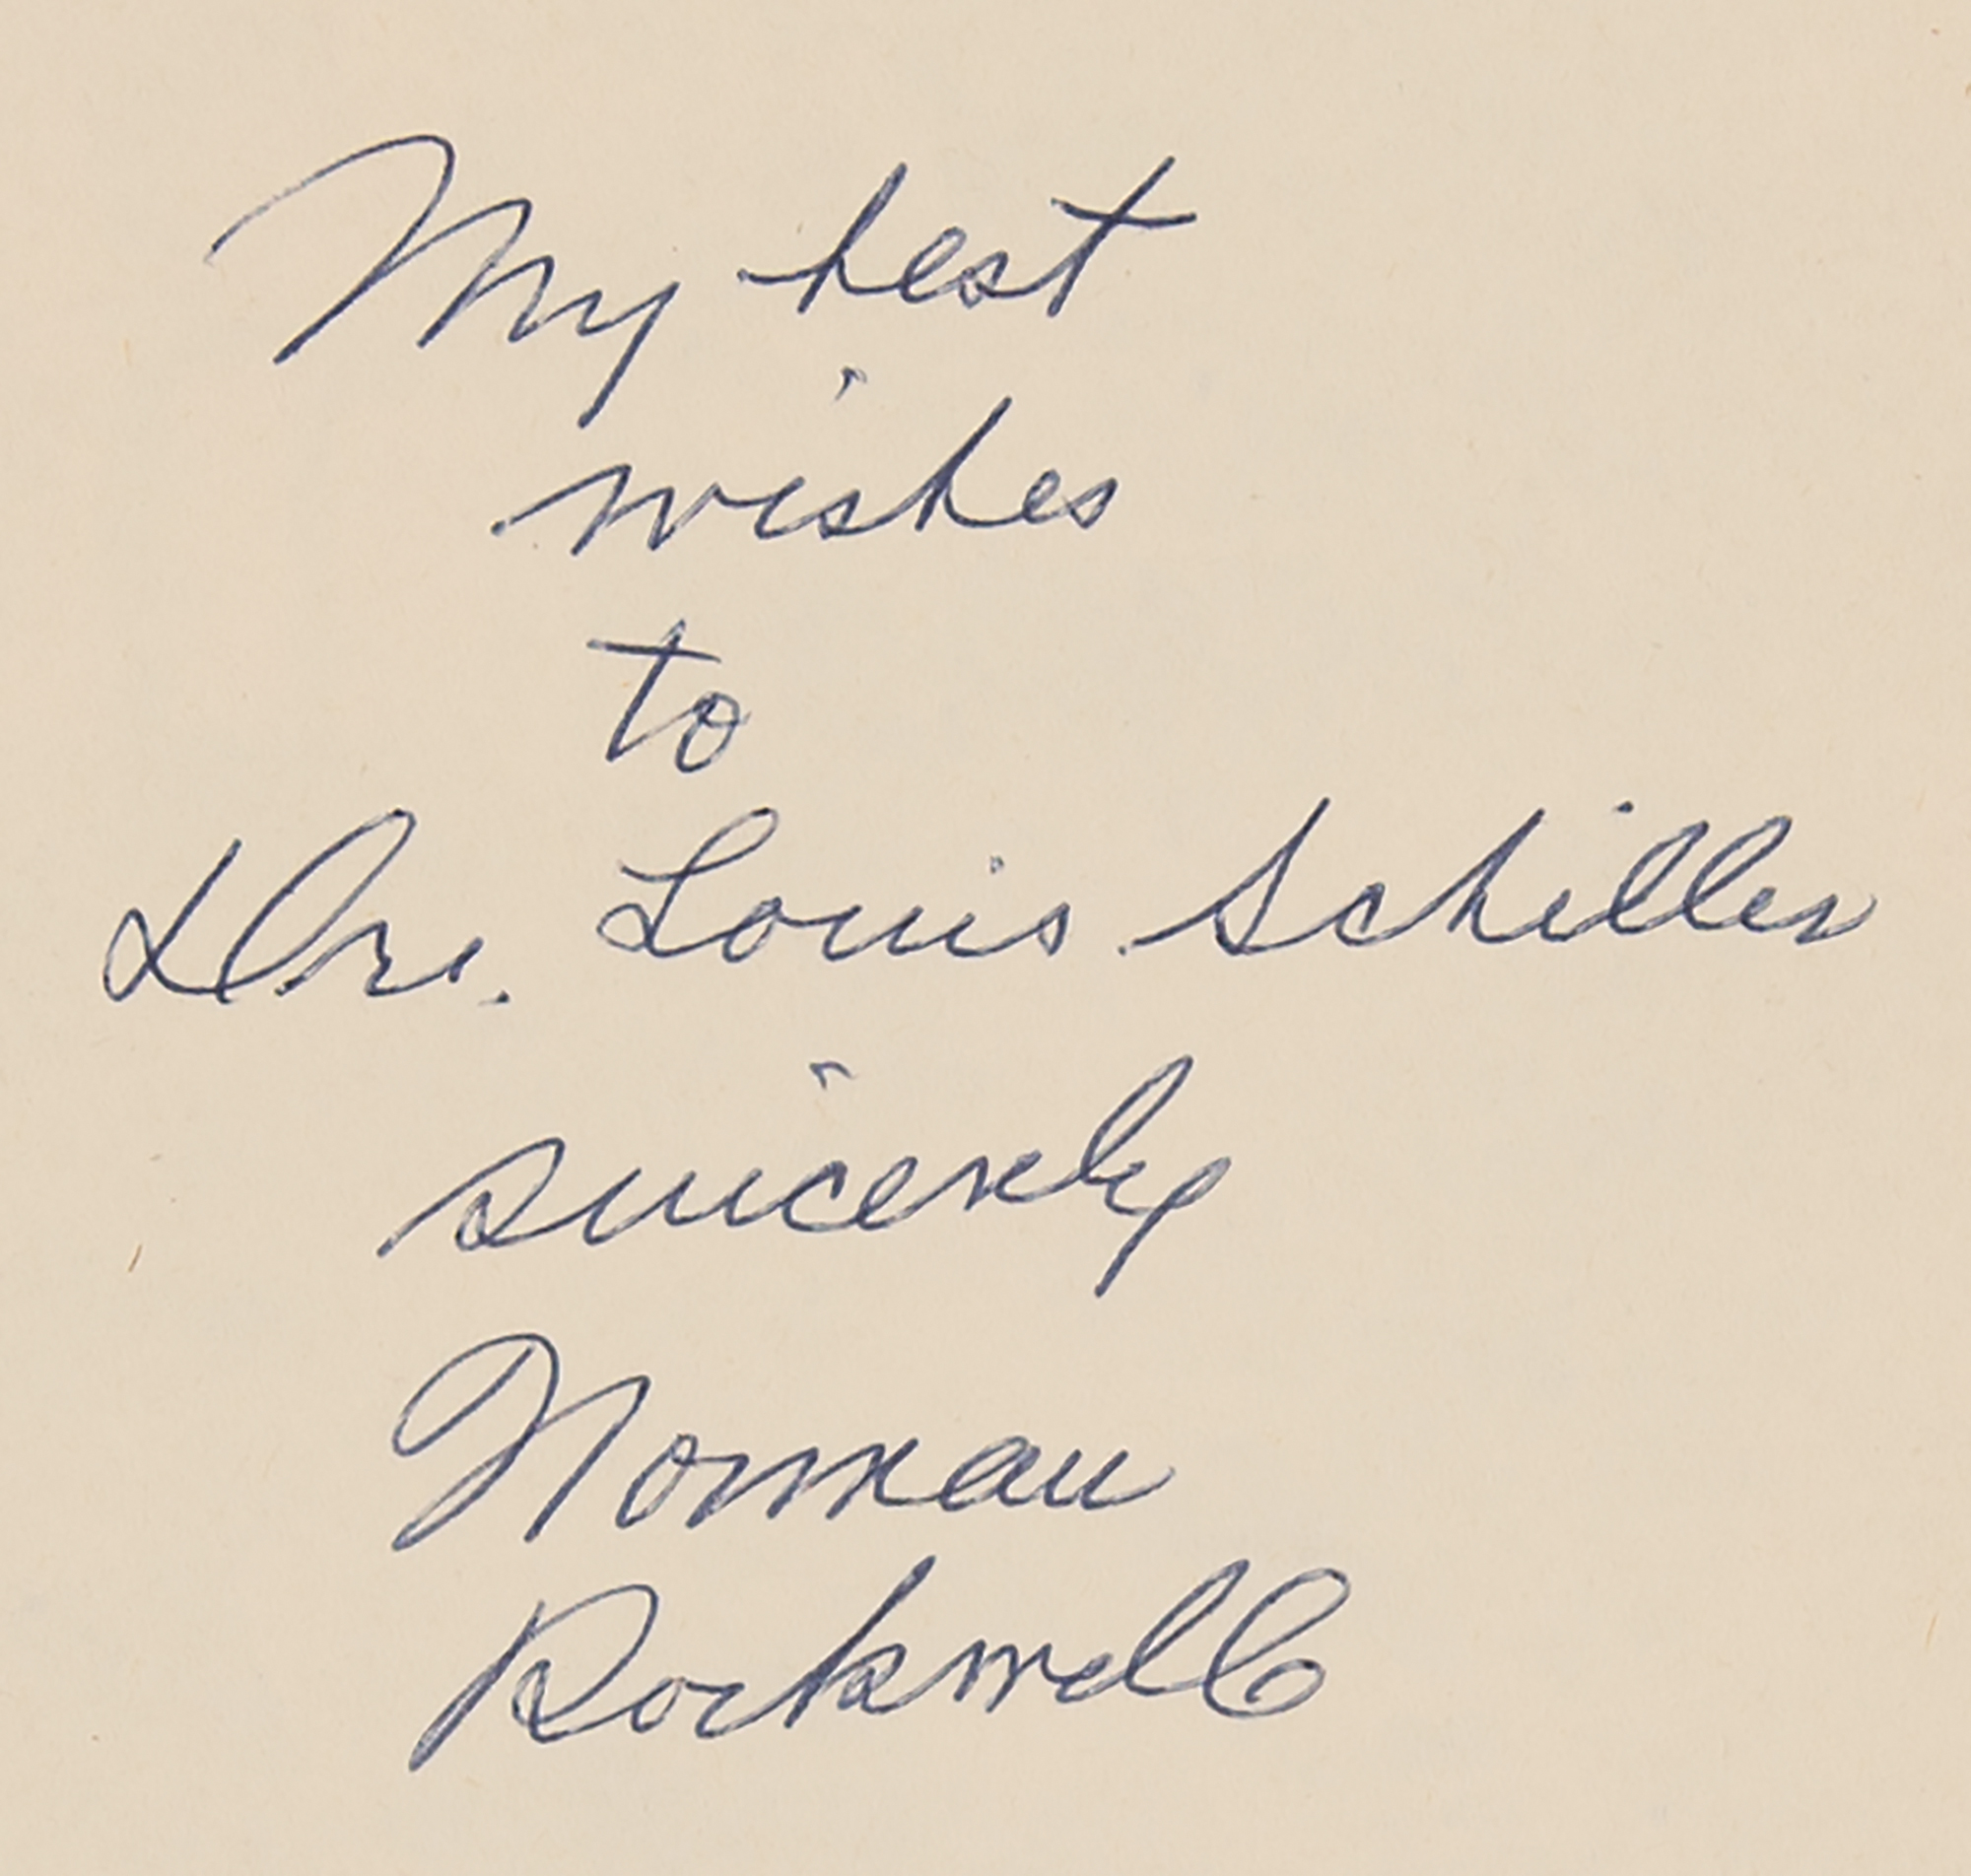 My best
wishes
to
Dr. Louis Schiller
sincerely
Norman
Rockwell